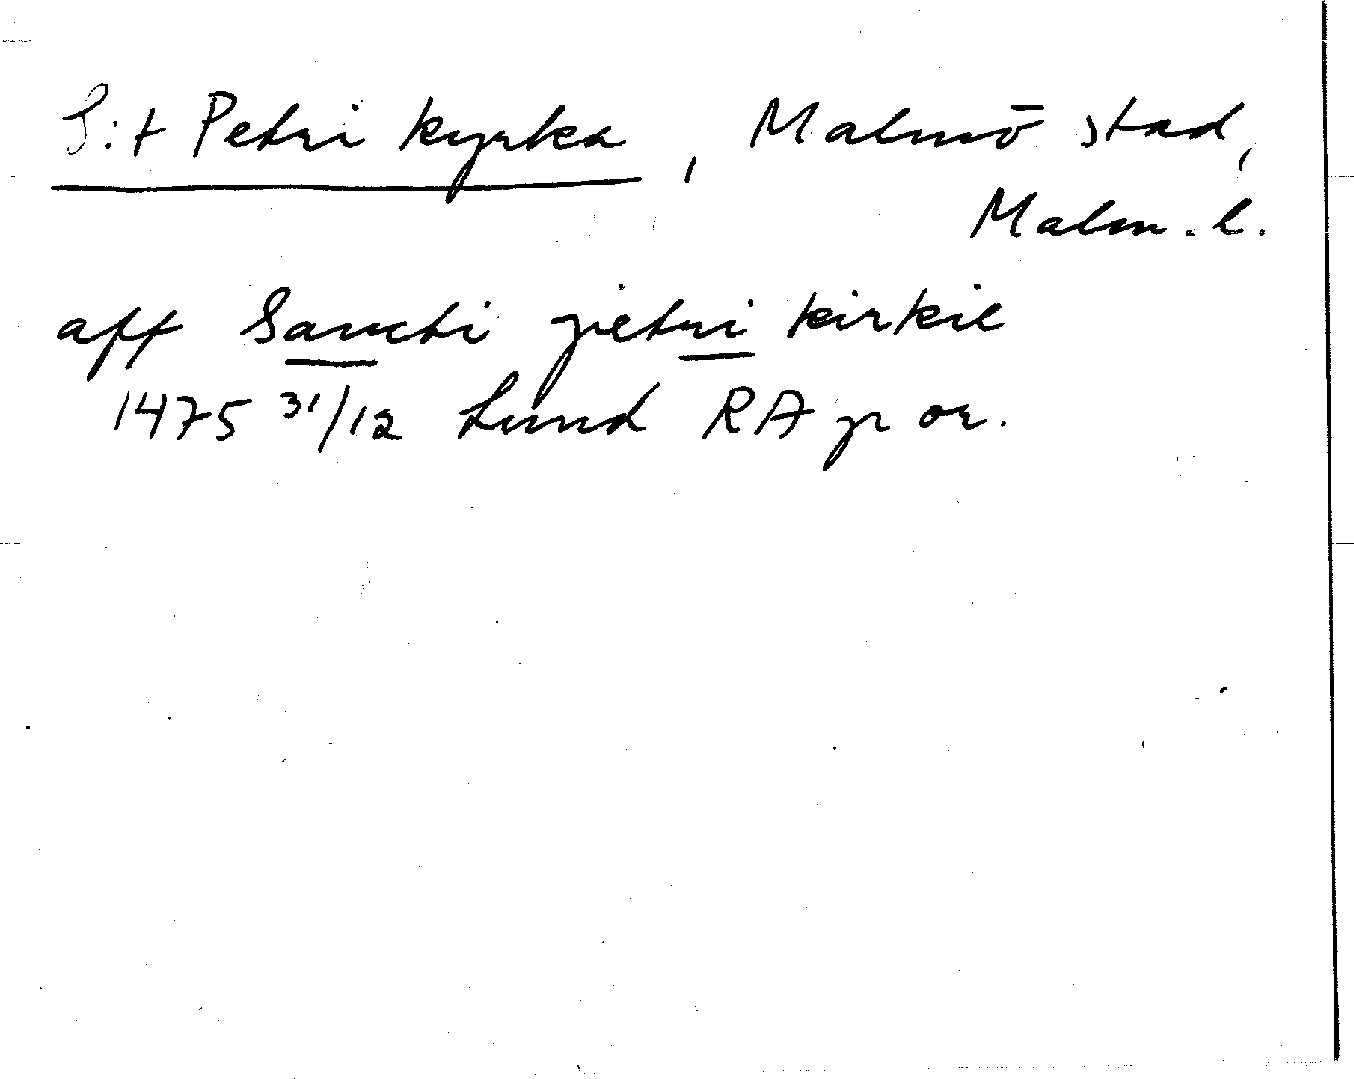 S:t Petri kyrka, Malmö stad,
Malm. l.
aff Sancti petri kirkie
1475 31/12 Lund RA p or.